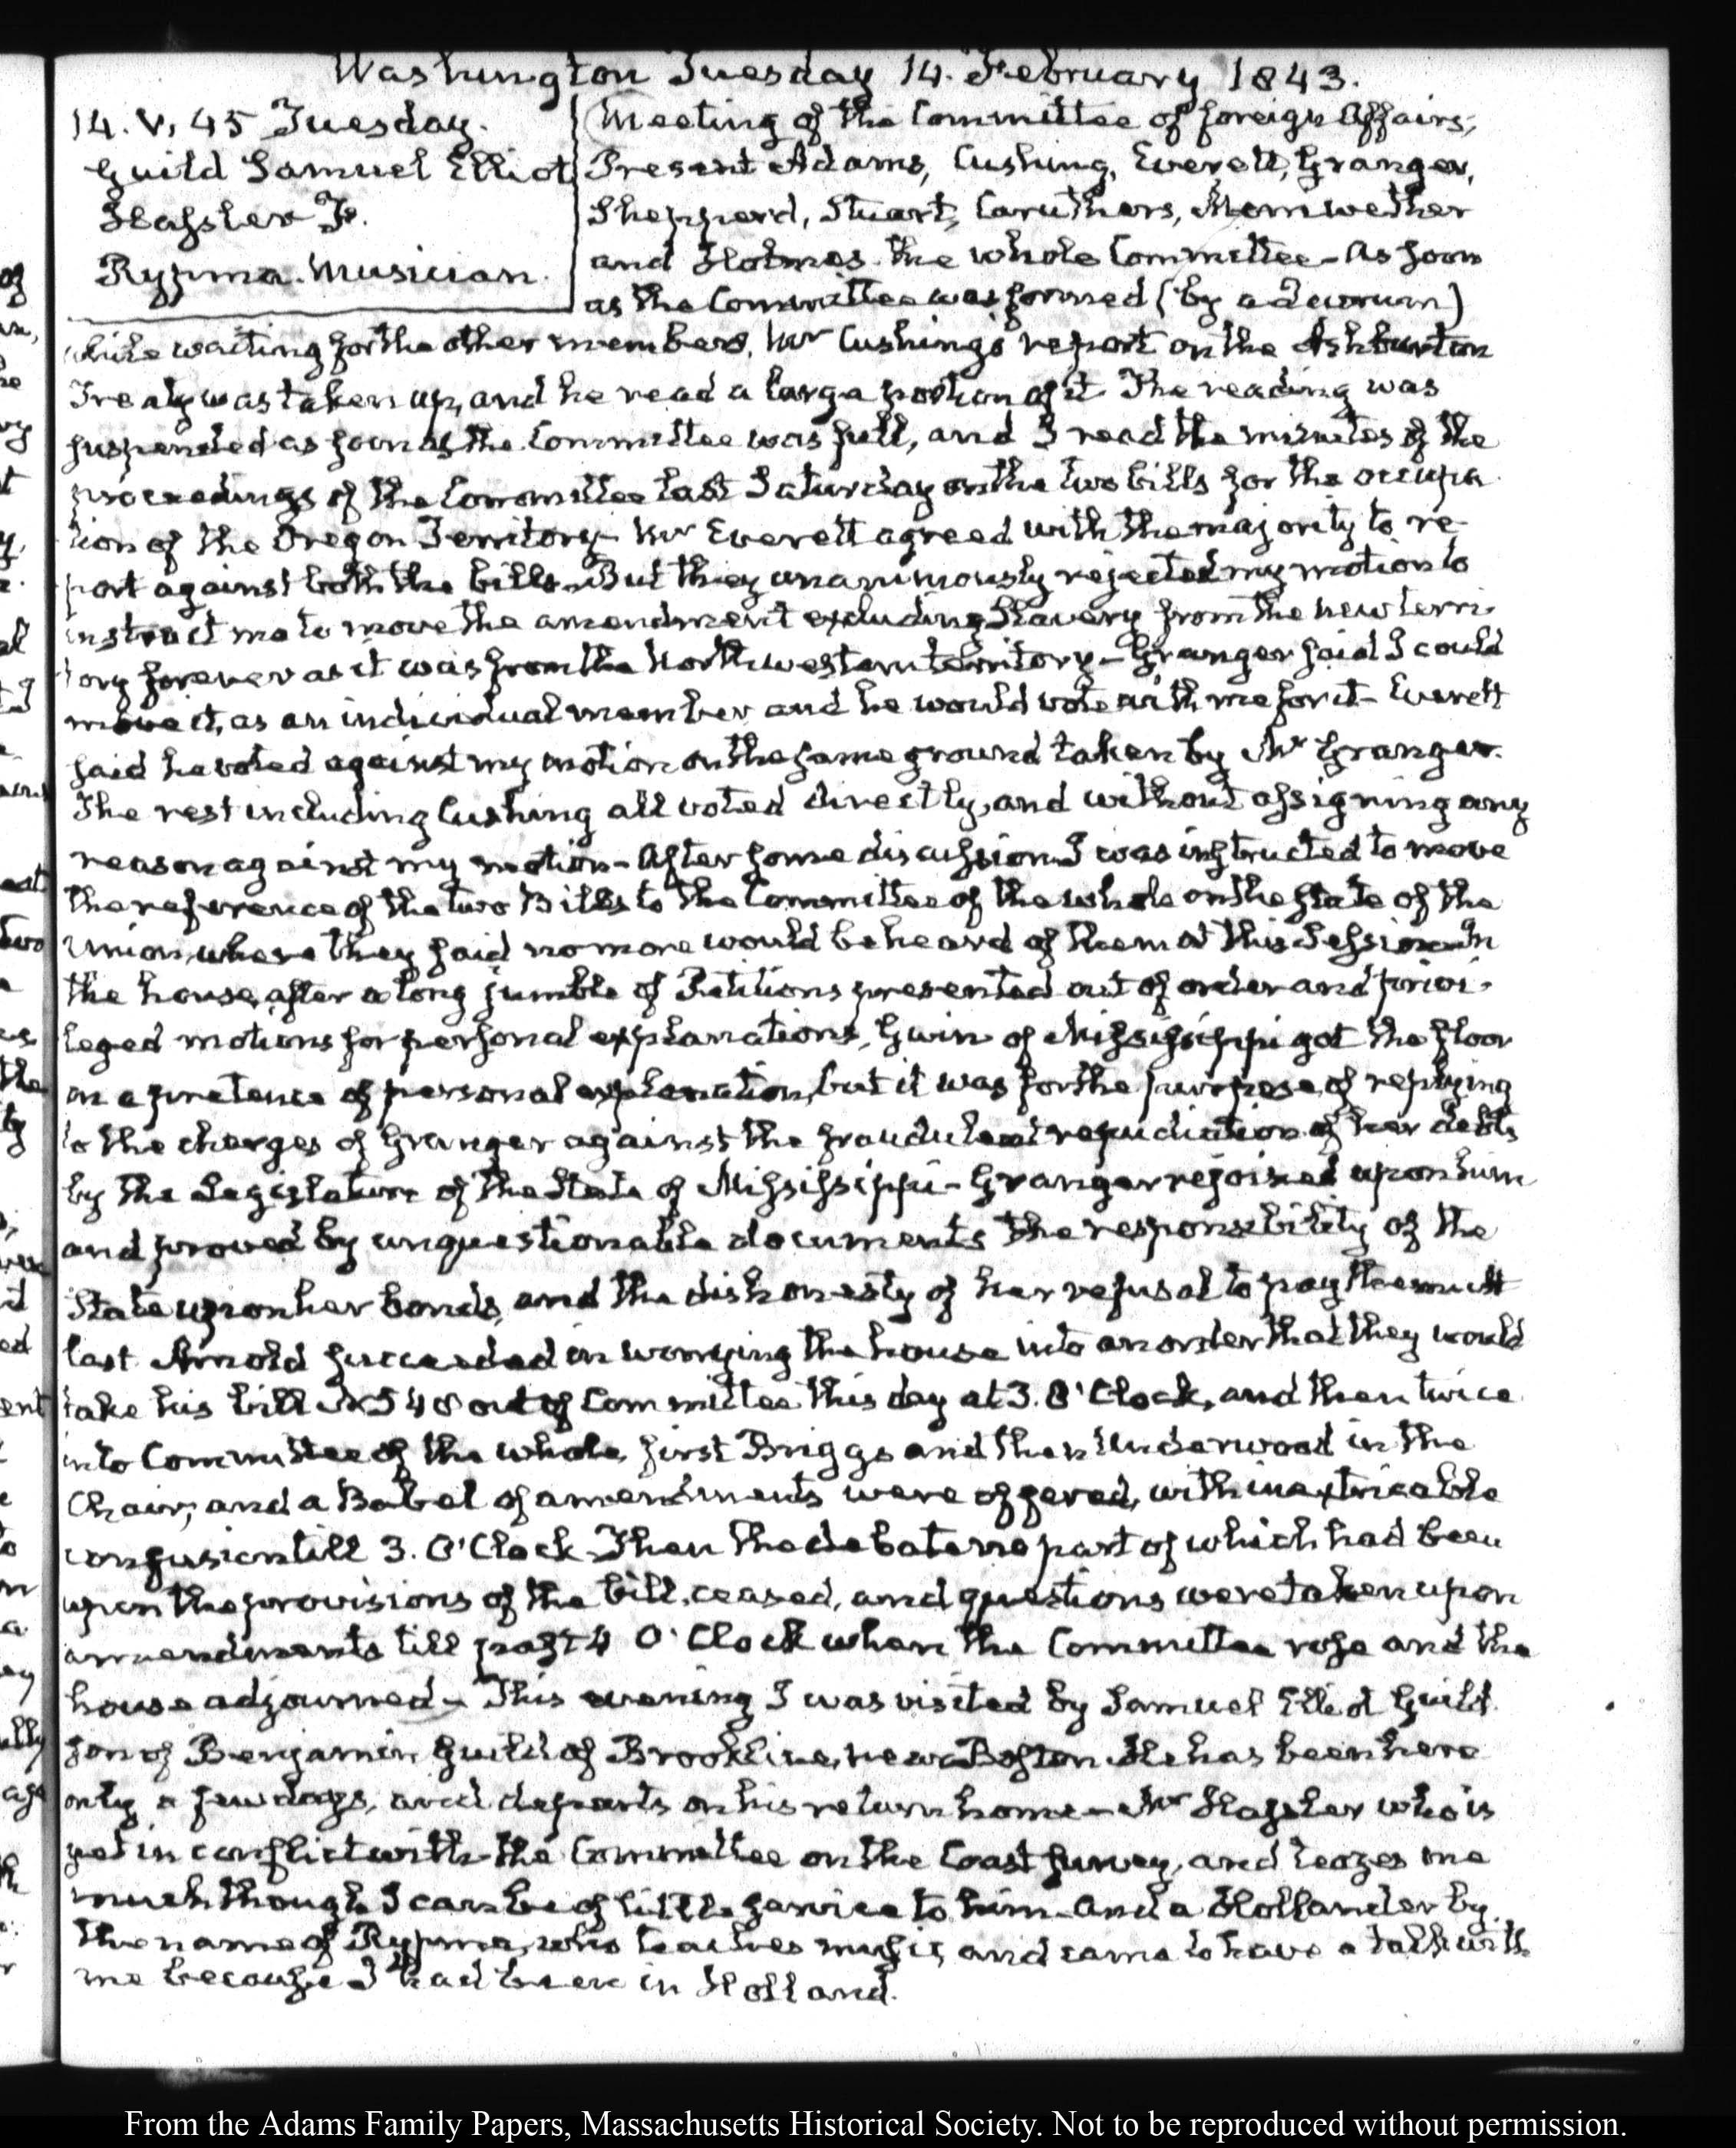 Washington Tuesday 14. February 1843.
14. V, 45 Tuesday.
Guild Samuel Elliot
Hassler Fr.
Rypma. Musician.
Meeting of the Committee of foreign Affairs;
Present Adams, Cushing, Everett, Granger,
Shepperd, Stuart, Caruthers, Meriwether
and Holmes the whole Committee - As soon
as the Committee was formed (by a Quorum)
while waiting for the other members, Mr Cushing's report on the Ashburton
Treaty was taken up, and he read a large portion of it. The reading was
suspended as soon as the Committee was full, and I read the minutes of the
proceedings of the Committee last Saturday on the two bills for the occupa
tion of the Oregon Territory - Mr Everett agreed with the majority to re-
port against both the bills - But they unanimously rejected my motion to
instruct me to move the amendment excluding Slavery from the new terri-
tory forever as it was from the North western territory - Granger said I could
move it, as an individual member and he would vote with me for it - Everett
said he voted against my motion on the same ground taken by Mr Granger.
The rest including Cushing all voted directly, and without assigning any
reason against my motion - After some discussion I was instructed to move
the reference of the two Bills to the Committee of the whole on the state of the
Union, where they said no more would be heard of them at this Session - In
the house, after a long jumble of Petitions presented out of order and privi-
leged motions for personal explanations, Gwin of Mississippi got the floor
on a pretence of personal explanation, but it was for the purpose of replying
to the charges of Granger against the fraudulent repudiation of her debts
by the Legislature of the State of Mississippi - Granger rejoined upon him
and proved by unquestionable documents the responsibility of the
State upon her bonds, and the dishonesty of her refusal to pay them - At
last Arnold succeeded in worrying the house into an order that they would
take his bill N 548 out of Committee this day at 3. O'Clock, and then twice
into Committee of the whole, first Briggs and then Underwood in the
Chair; and a Babel of amendments were offered, with inextricable
confusion till 3. O'Clock - Then the debate no part of which had been
upon the provisions of the bill, ceased, and questions were taken upon
amendments till past 4 O'Clock when the Committee rose and the
house adjourned - This evening I was visited by Samuel Elliot Guild
son of Benjamin Guild of Brookline, near Boston. He has been here
only a few days, and departs on his return home - Mr Hassler who is
yet in conflict with the Committee on the Coast survey, and teazes me
much though I can be of little service to him - And a Hollander by
the name of Rypma, who teaches music, and came to have a talk with
me because I had been in Holland.
From the Adams Family Papers, Massachusetts Historical Society. Not to be reproduced without permission.